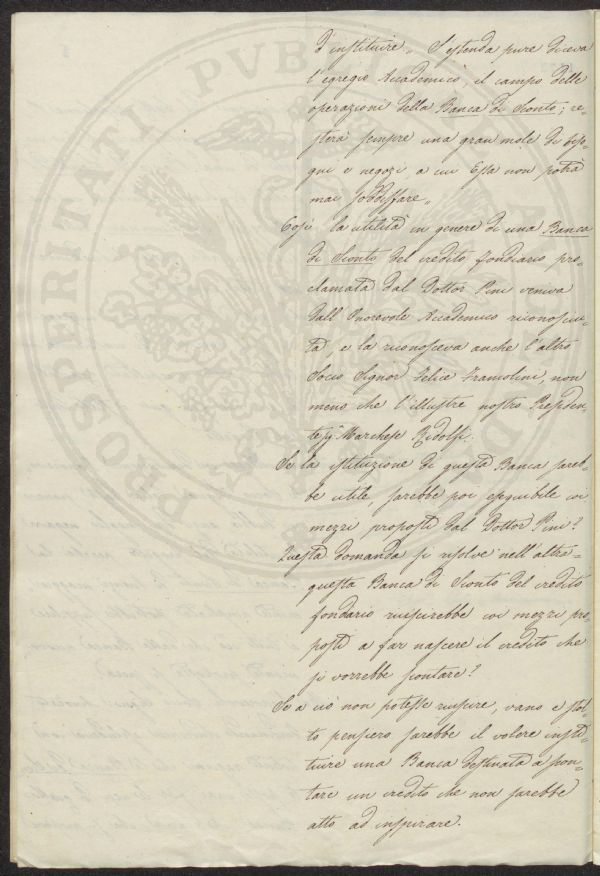 d'instituire „ S'estenda pure diceva
l'egregio Accademico, il campo delle
operazioni della Banca di Sconto; re-
sterà sempre una gran mole di biso-
gni e negozi a cui Essa non potrà
mai soddisfare „
Così la utilità in genere di una Banca
di Sconto del credito fondiario pro-
clamata dal Dottor Pini veniva
dall'Onorevole Accademico riconosciu-
ta, e la riconosceva anche l'altro
Socio Signor Felice Francolini, non
meno che l'illustre nostro Presiden-
te Marchese Ridolfi.
Se la istituzione di questa Banca sareb-
be utile, sarebbe poi eseguibile coi
mezzi proposti dal Dottor Pini?
Questa domanda si risolve nell'altra=
questa Banca di Sconto del credito
fondario riuscirebbe coi mezzi pro-
posti a far nascere il credito che
si vorrebbe scontare?
Se a ciò non potesse riuscire, vano e stol-
to pensiero sarebbe il volere insti-
tuire una Banca destinata a scon-
tare un credito che non sarebbe
atto ad inspirare.
PROSPERITATI PVB